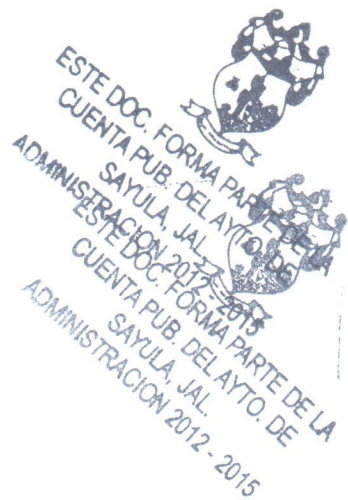 ESTE DOC. FORMA PARTE DE LA
CUENTA PUB. DEL AYTO. DE
SAYULA, JAL.
ADMINISTRACION 2012 - 2015
ESTE DOC. FORMA PARTE DE LA
CUENTA PUB. DEL AYTO. DE
SAYULA, JAL.
ADMINISTRACION 2012 - 2015